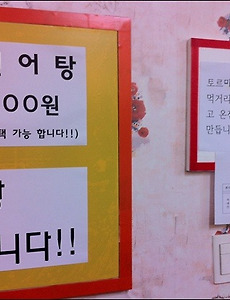 어탕
00원
택 가능 합니다!!)
니다!!
토르마
먹거리
고 온
만듭니